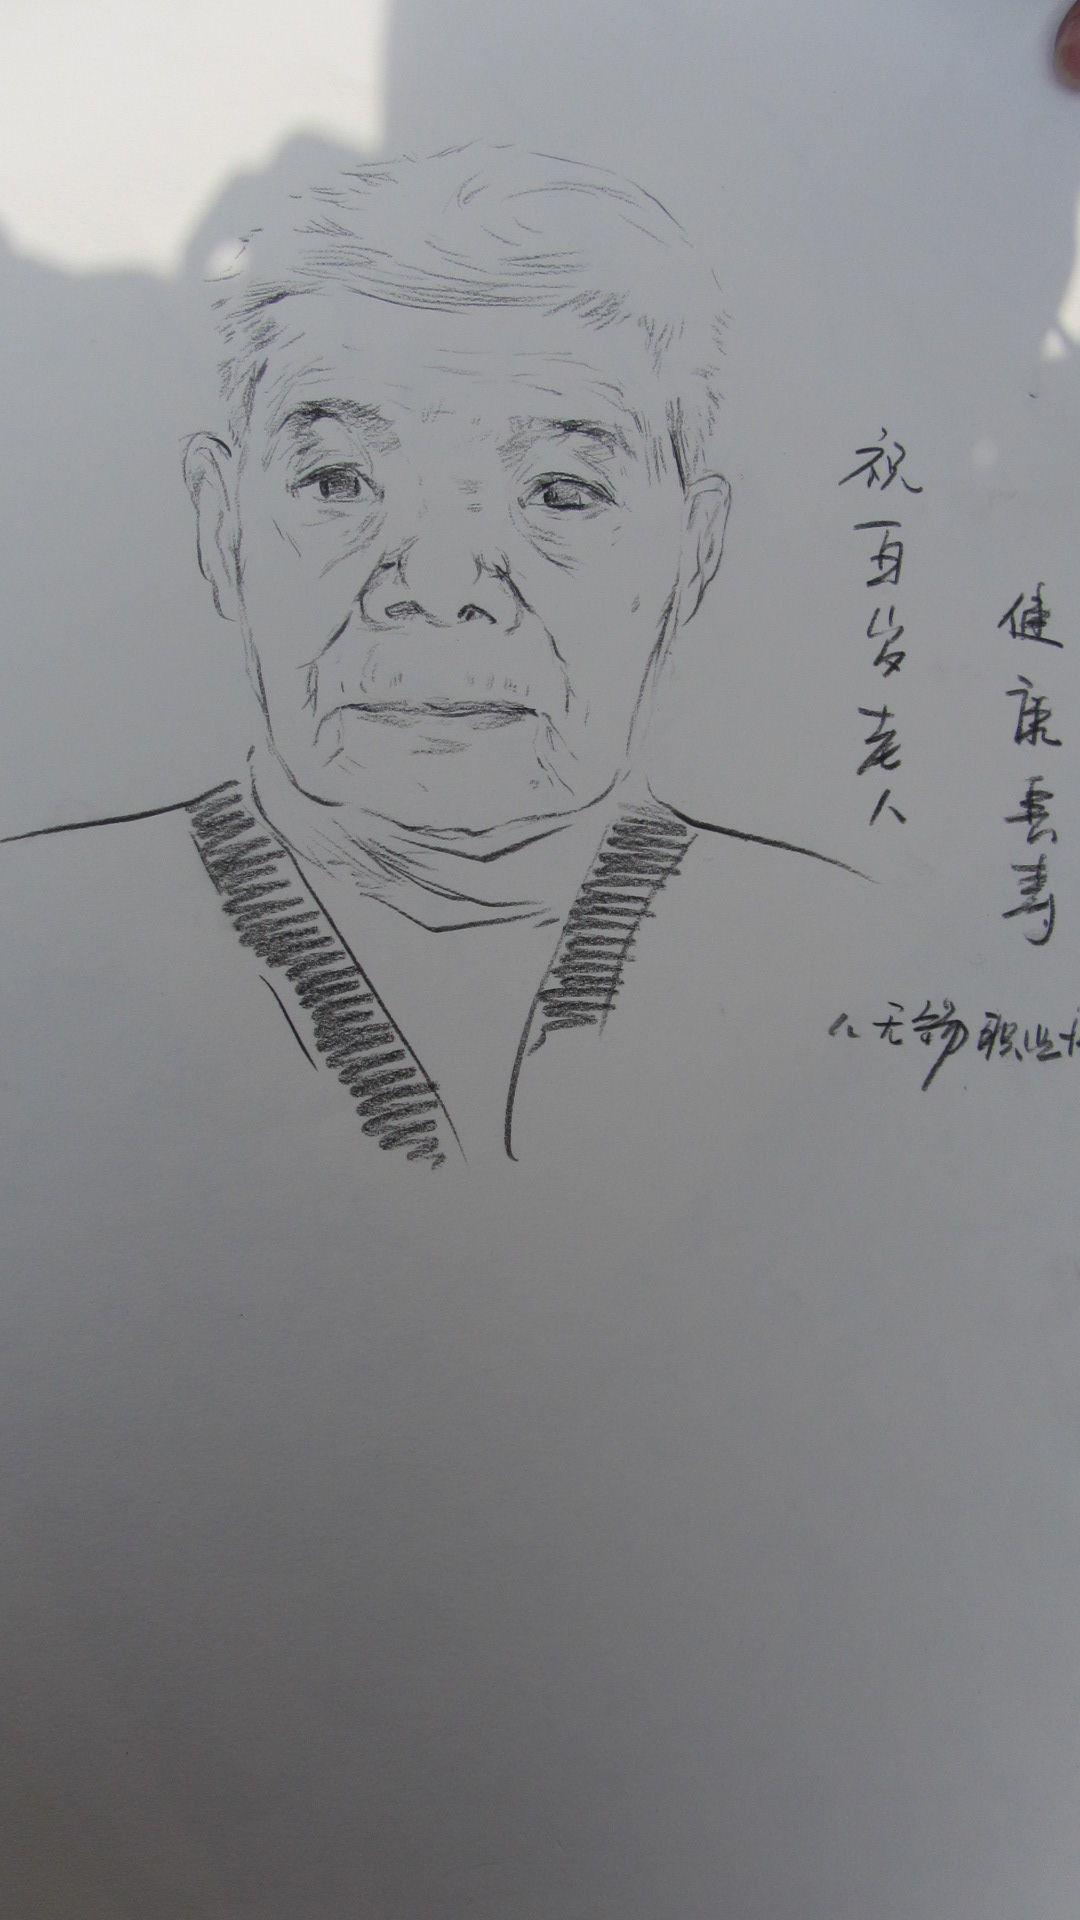 祝百岁老人
健康長寿
无锡职业